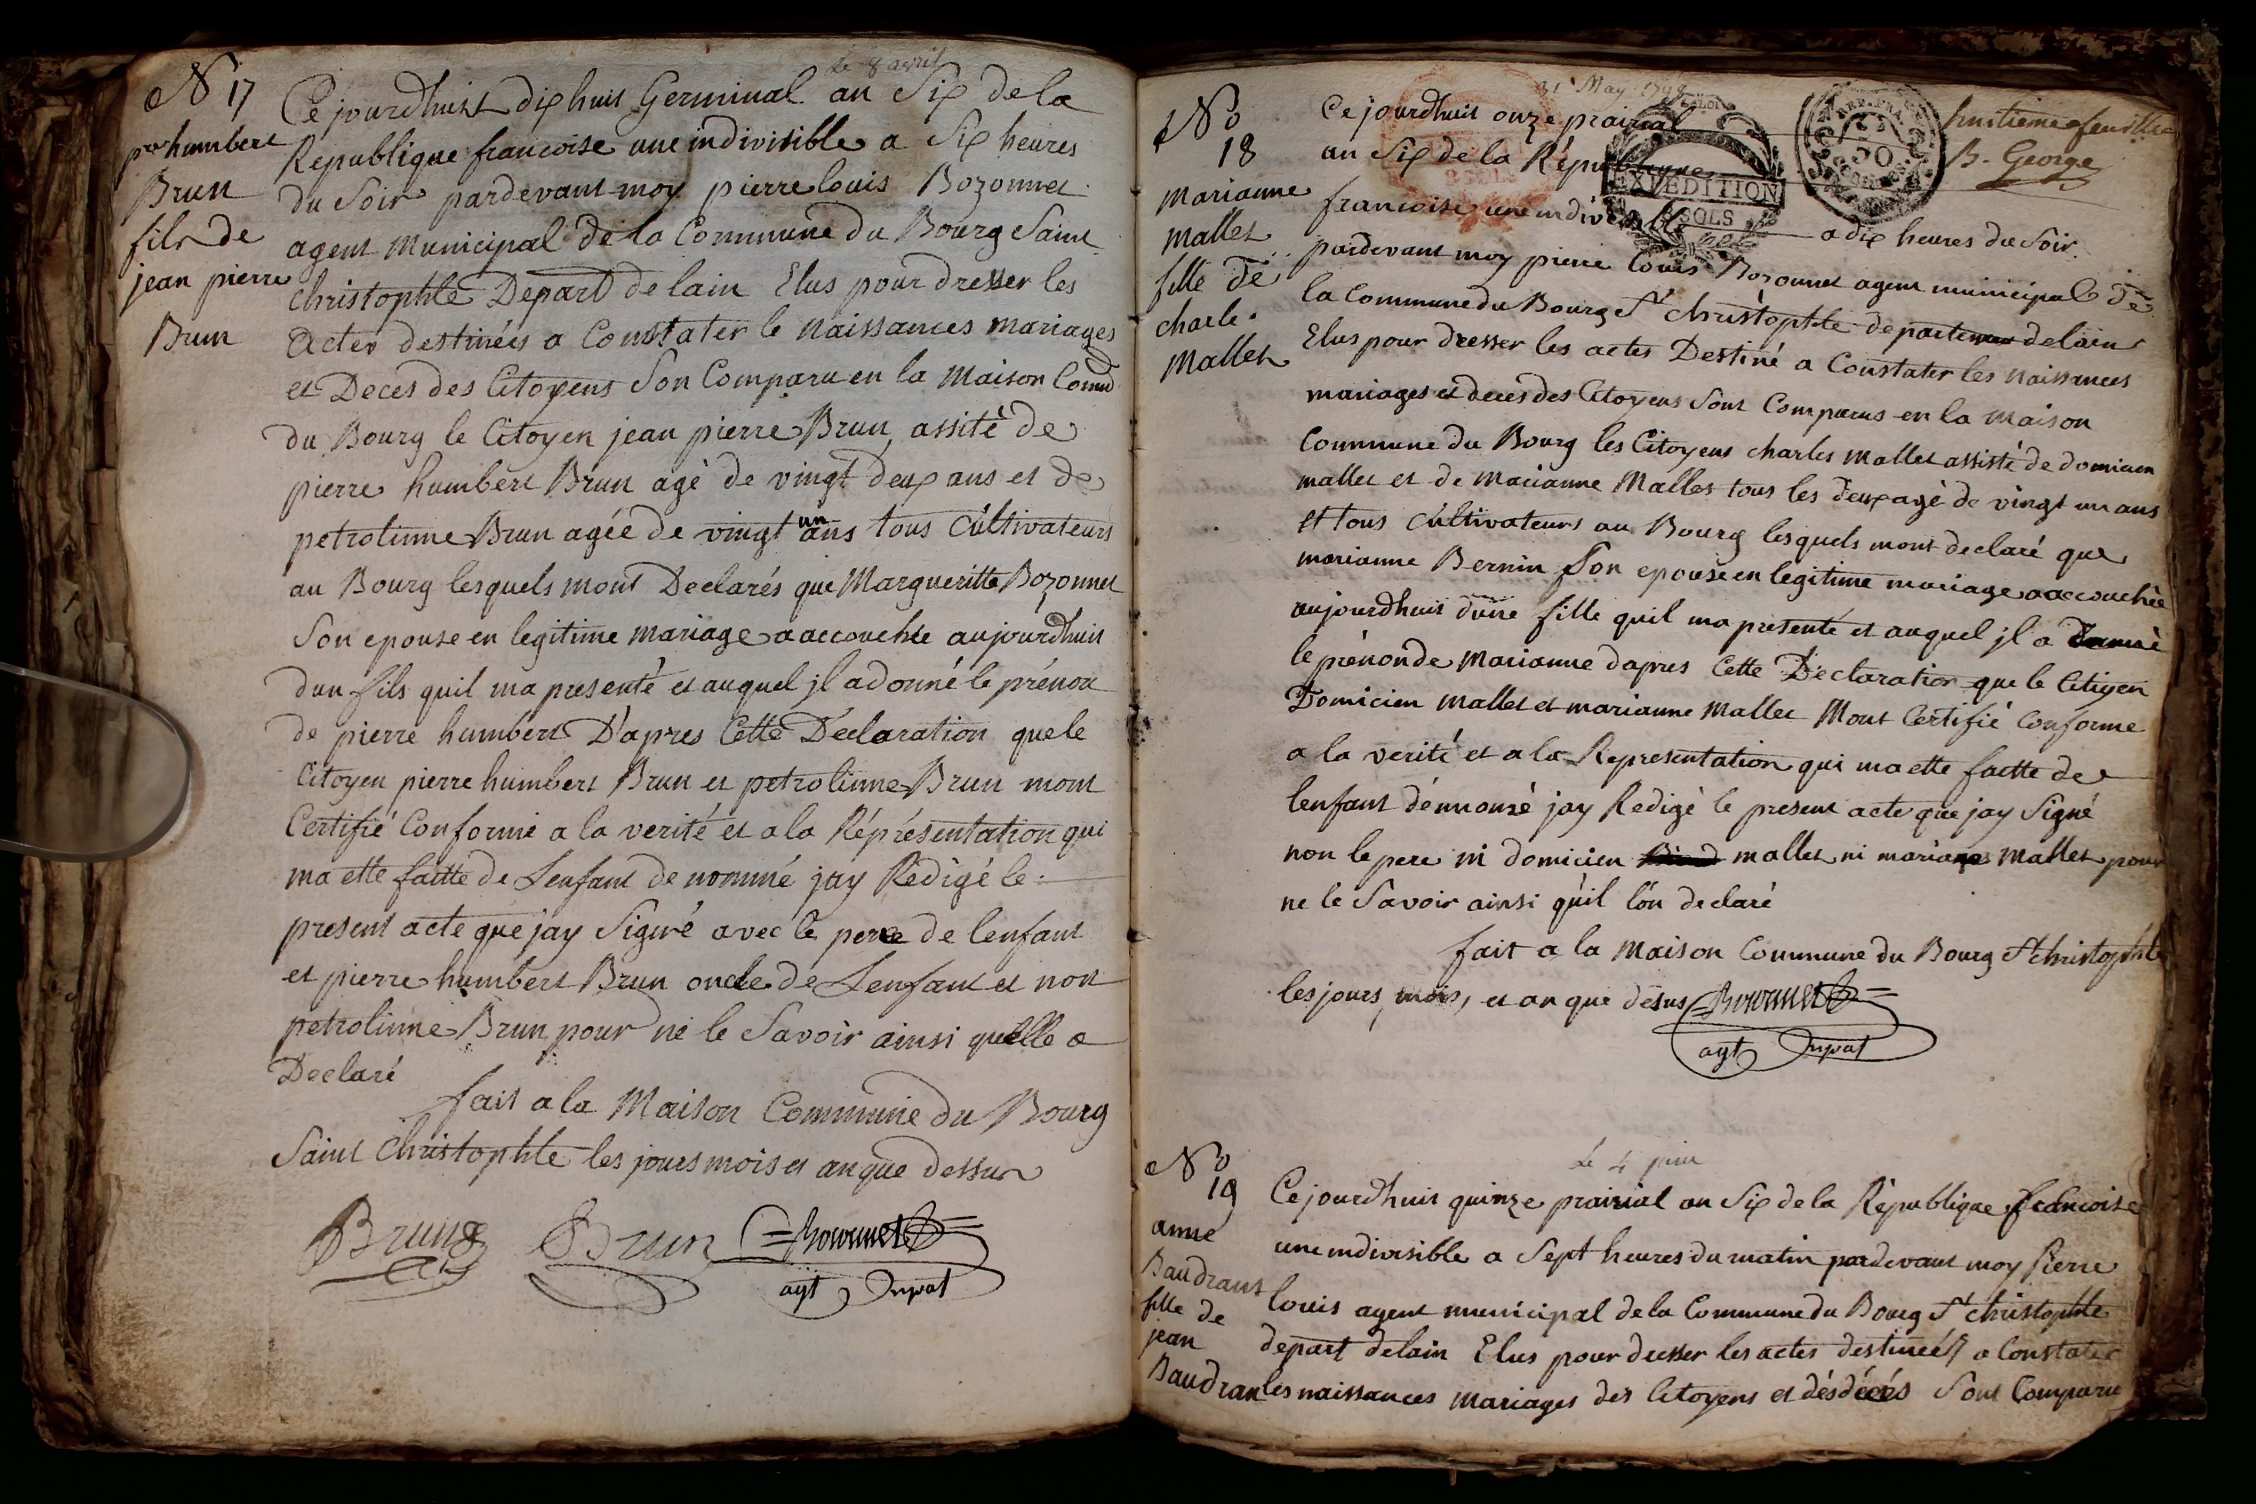 le 8 avril
N 17
pre humbert
Brun
fils de
jean pierre
Brun
Ce jourdhuist dix huit Germinal an Six de la
Republique francoise une indivisible a Six heures
du Soir pardevant moy pierre louis Bozonnet
agent Municipal de la Commune du Bourg Saint
christophle Depart de lain Elus pour dresser les
Actes destinées a Constater le Naissances mariages
et Deces des Citoyens Son Comparu en la Maison
du Bourg le Citoyen jean pierre Brun assité de
pierre humbert Brun agé de vingt deux ans et de
petrolinne Brun agée de vingt un ans tous Cultivateurs
au Bourg lesquels mont Declarés que Margueritte Bozonnet
Son epouse en legitime mariage a accouchée aujourdhuit
dun fils quil ma presenté et auquel jl a donné le prénon
de pierre humbert D'apres Cette Declaration que le
Citoyen pierre humbert Brun et petrolinne Brun mont
Certifié Conforme a la verité et a la Réprésentation qui
ma etté faitte de Lenfant denommé jay Rédigé le
present acte que jay Signé avec le pere de lenfant
et pierre humbert Brun oncle de Lenfant et non
petrolinne Brun pour ne le Savoir ainsi quelle a
Declaré
fait a la Maison Commune du Bourg
Saint Christophle les jours mois et an que dessus
Brun Brun Bozonnet
agt mpal
31 May 1798
huitieme feuillet
B. George
REP. FRA.
50
EXPEDITION
SOLS
No
18
Marianne
mallet
fille de
charle
Mallet
Ce jourdhuit onze prairial
an Six de la République
francoise une indivisible a dix heures du Soir
pardevant moy pierre louis Bozonnet agent municipal de
la Commune du Bourg St christophle departement delain
Elus pour dresser les actes Destiné a Constater les naissances
mariages et deces des Citoyens Sont Comparus en la maison
Commune du Bourg les Citoyens charles mallet assisté de domicien
mallet et de marianne Mallet tous les deux agé de vingt un ans
et tous cultivateurs au Bourg lesquels mont declaré que
marianne Bernin Son epouse en legitime mariage a accouchée
aujourdhuit dune fille quil ma presenté et auquel jl a donné
le prénon de Marianne dapres Cette Declaration que le Citoyen
Domicien mallet et marianne mallet Mont Certifié Conforme
a la verité et a la Representation qui ma etté faitte de
lenfant dénnomé jay Redigé le present acte que jay Signé
non le pere ni domicien mallet ni mariane mallet pour
ne le Savoir ainsi qu'il l'on declaré
fait a la Maison Commune du Bourg St christophle
les jours, mois, et an que désus Bozonnet
agt mpal
le 4 juin
No
19
anne
Baudrant
fille de
jean
Baudran
Ce jourdhuit quinze prairial an Six de la République francoise
une indivisible a Sept heures du matin pardevant moy pierre
louis agent municipal de la Commune du Bourg St christophle
depart delain Elus pour dresser les actes destinées a Constater
les naissances mariages des Citoyens et désdécés Sont Comparu